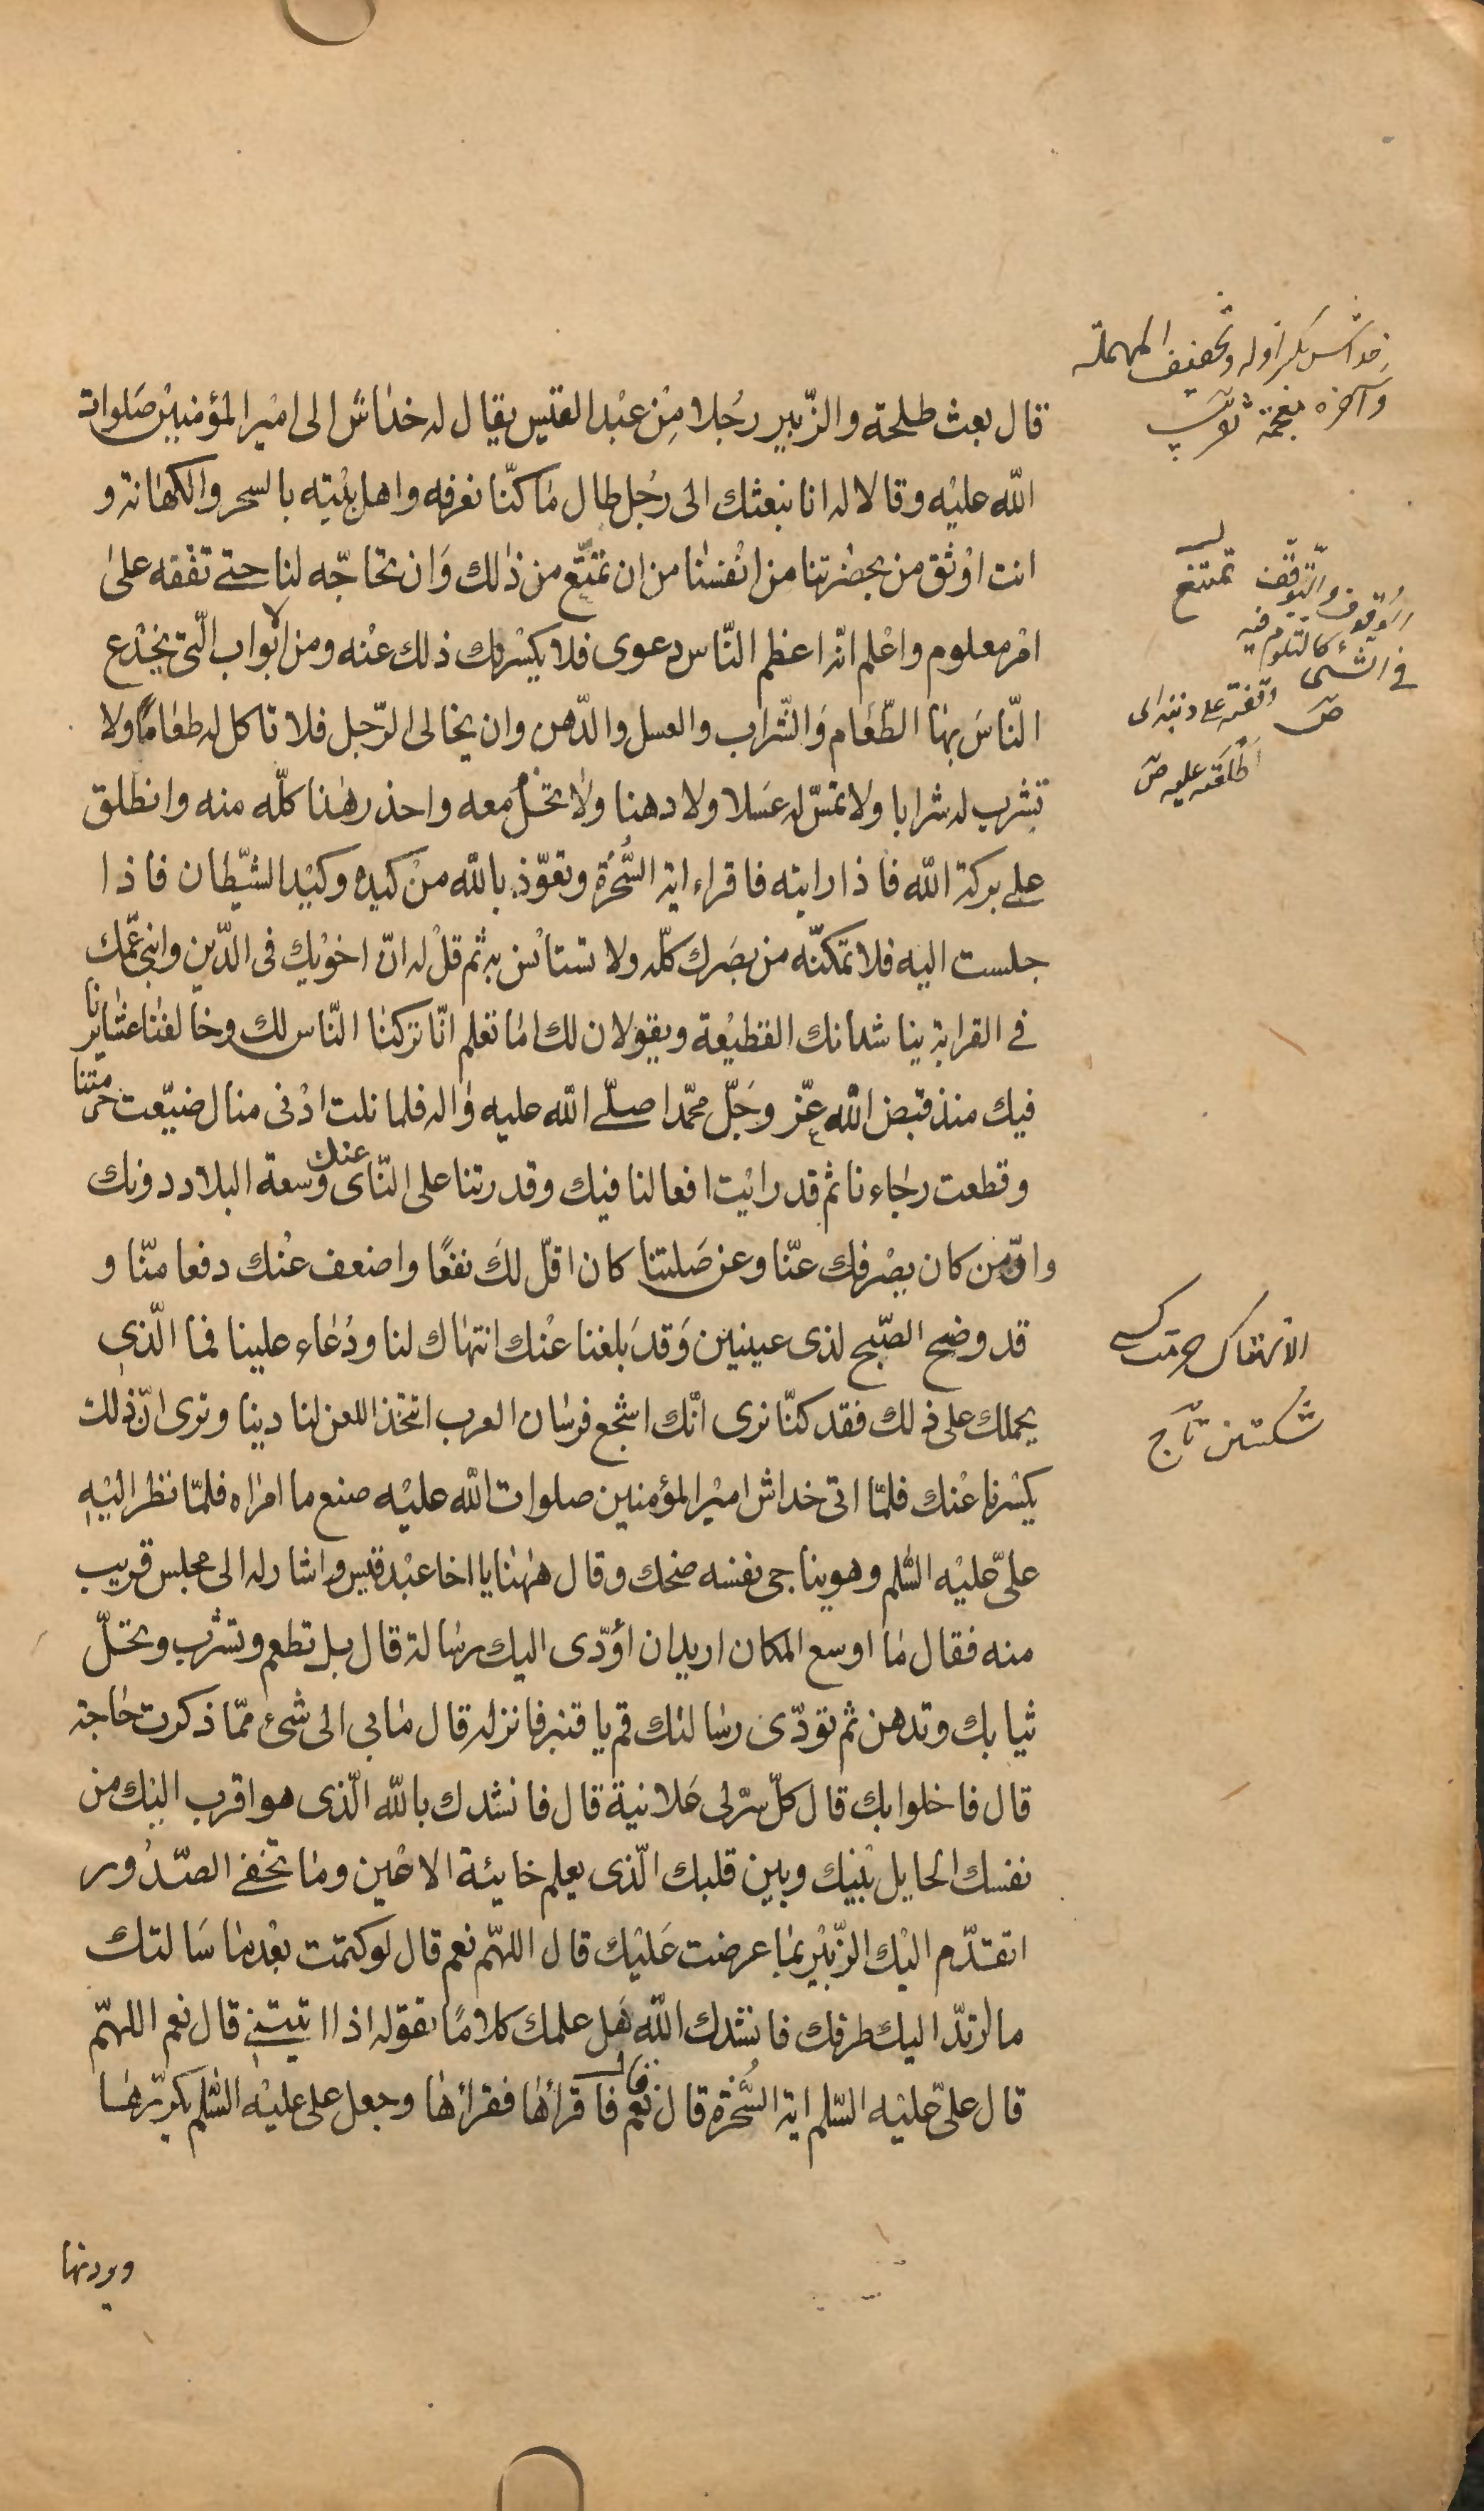 قال بعث طلحة والزّبير رجُلا مِنْ عبْد القيس يقال له خداش الى اميْر المؤمنيْن صَلوات
اللّه عليْه وقالا له انا نبعثك الى رجُل طال مٰا كنّا نعرفه واهل بيْته بالسحر والكهٰانة و
انت اوْثق من بحضْرتنا من انْفسنٰا من ان تمتنع من ذٰلك وَان تحٰاجّه لنا حتى تقفه علىٰ
امْر معلوم واعْلم انّه اعظم النّاس دعوى فلا يكسْرنك ذلك عنْه ومن الابْواب الّتى يخْدع
النّاسَ بهٰا الطّعَام وَالشّراب والعسل والدّهن وان يخالى الرّجل فلا تاكل له طعٰامًا ولا
تشرب له شرابا ولا تمسّ له عسَلا ولا دهنا ولٰا تخل معه واحذر هٰذا كلّه منه وانطلق
على بركة اللّه فاذا رايته فاقراء اية السُّخْرَة وتعوّذ باللّه منْ كيده وكيْد الشّيْطان فاذا
جلست اليه فلا تمكنّه من بصَرك كلّه ولا تستأنس به ثم قلْ له انّ اخوْيك فى الدّين وابنىْ عمّك
فى القرابة يناشدانك القطيْعة ويقوْلان لك امٰا تعلم انّا تركنٰا النّاس لك وخالفنٰا عشايرنا
فيك منذ قبض اللّه عزّ وجَلّ محمّدا صلّى اللّه عليه وٰاله فلما نلت ادْنى منال ضيّعت حرمتنا
وقطعت رجٰاءنا ثم قد رايْت افعالنا فيك وقدرتنا على النّاى عنك وسعة البلاد دونك
وانّ من كان يصْرفك عنّا وعن صَلتنا كان اقلّ لكَ نفعًا واضعف عنْك دفعا منّا و
قد وضح الصّبح لذى عينين وَقدَ بلغنا عنْك انتهٰاك لنا ودُعٰاء علينا فما الّذى
يحملك على ذلك فقد كنّا نرى انّك اشجع فرسٰان العرب اتتخذ اللعن لنا دينا وترى انّ ذٰلك
يكسْرنا عنْك فلمّا اتى خداش اميْر المؤمنين صلوات اللّه عليْه صنع ما امرٰاه فلمّا نظر اليْهِ
علىّ عليْه السّٰلم وهو يناجى نفسه ضحك وقال هٰهنٰا يا اخا عبْد قيس واشار له الى مجلس قريب
منه فقال مٰا اوسع المكان اريد ان اؤدّى اليك رسٰالة قال بل تطعم وتشرب وتخلّ
ثيابك وتدهن ثم تودّى رسٰالتك قم يا قنبر فانزله قال مٰا بى الى شئ ممّا ذكرت حٰاجة
قال فاخلوا بك قال كلّ سرّ لى عَلانية قال فانشدك باللّه الّذى هو اقرب اليْك من
نفسك الحايل بْينك وبين قلبك الّذى يعلم خاينة الاعْين ومٰا تخفى الصّدُور
اتقدّم اليْك الزّبيْر بمٰا عرضت عَليْك قال اللهّم نعم قال لو كتمت بعْد مٰا سَالتك
ما ارتدّ اليك طرفك فانشدك اللّه هَل علمك كلامًا تقوله اذا اتيتنى قال نعم اللهّم
قال علىّ عليْه السّلم اية السُّخرة قال نعم قال فاقرأهٰا فقرأهٰا وجعل على عليْه السّٰلم يكرّرهٰا
ويردّدها
خداش بكسر اوله وتخفيف المهملة
وآخره معجمة تقريب
تمتنع
الوقوف والتّوقّف
فى الشئ كالتلوّم فيه
ص
وقفته على ذنبه اى
اطلعته عليه ص
الانتهاك حرمت كسى
شكستن تاج